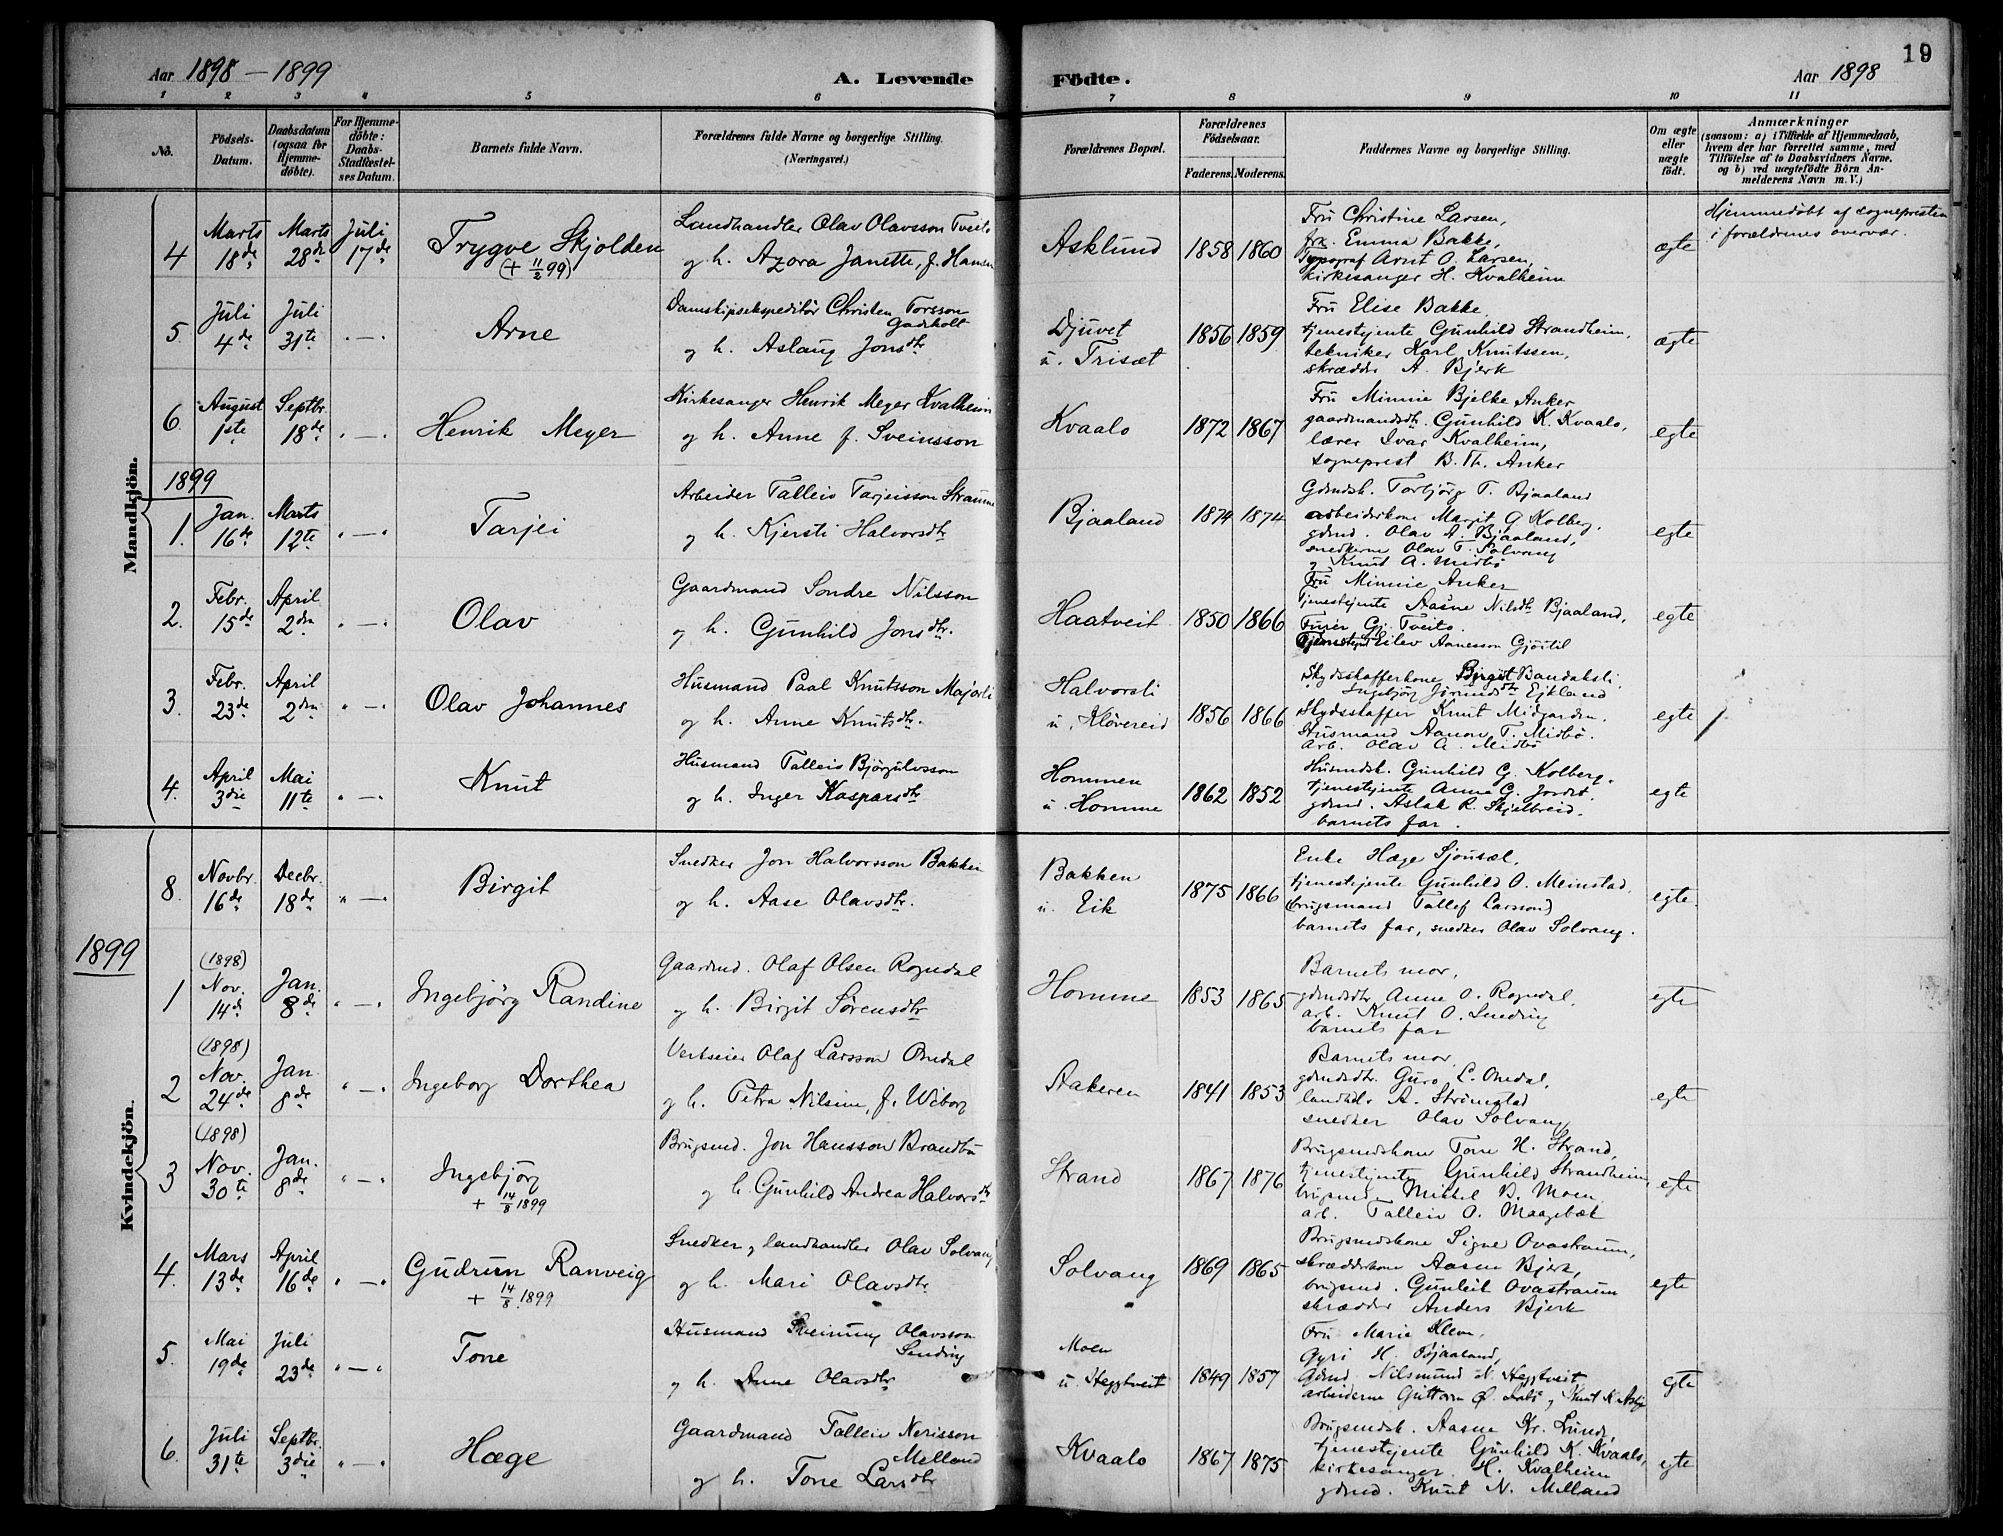 19
Aar 1898 - 1899
A. Levende Födte.
Aar 1898
1 2 3 4 5 6 7 8 9 10 11
No.
Födsels-Datum.
Daabsdatum (ogsaa for Hjemme-döbte).
For Hjemme-döbte: Daabs-Stadfæstel-ses Datum.
Barnets fulde Navn.
Forældrenes fulde Navne og borgerlige Stilling.
(Næringsvei.)
Forældrenes Bopæl.
Forældrenes Födselsaar.
Faderens. Moderens.
Faddernes Navne og borgerlige Stilling.
Om ægte eller uægte födt.
Anmærkninger
(saasom: a) i Tilfælde af Hjemmedaab, hvem der har forrettet samme, med Tilföielse af to Daabsvidners Navne, og b) ved uægtefödte Börn An-melderens Navn m. V.)
Mandkjön.
4 Marts 18de Marts 28de Juli 17de
Trygve Skjolden
(+ 11/2 99)
Landhandler Olav Olavsson Tveito
og h. Azora Janette, f. Hansen
Asklund 1858 1860
Fru Christine Larsen,
frk. Emma Bakke,
Typograf Arnt O. Larsen,
kirkesanger H. Kvalheim
ægte
Hjemmedøbt af sognepresten
i forældrenes overvær.
5 Juli 4de Juli 31te " — "
Arne
Damskipsekspeditör Christen Torsson
Gaasholt
og h. Aslaug Jonsdtr
Djuvet
u. Trisæt
1856 1859
Fru Elise Bakke
tjenestjente Gunhild Strandheim,
tekniker Karl Knutssen,
skrædder A. Bjerk
ægte
6. August 1ste Septbr. 18de " — "
Henrik Meyer
Kirkesanger Henrik Meyer Kvalheim
og h. Anne f. Sveinsson
Kvaalo 1872 1867
Fru Minnie Bjelke Anker
gaardmandsdtr. Gunhild K. Kvaalo,
lærer Ivar Kvalheim,
sogneprest B. Th. Anker
egte
1899
1. Jan. 16de Marts 12te " — "
Tarjei
Arbeider Talleiv Tarjeisson Straume
og h. Kjersti Halvorsdtr
Bjaaland 1874 1874
Gdmdsk. Torbjörg T. Bjaaland
arbeiderkone Margit G Kolberg.
gdmd. Olav A. Bjaaland,
snedkerne Olav T. Solvang
og Knut A. Midbö
egte
2. Febr. 15de April 2den " — "
Olav
Gaardmand Sondre Nilsson
og h. Gunhild Jonsdtr.
Haatveit 1850 1866
Fru Minnie Anker
Tjenestejente Aasne Nilsdtr Bjaaland,
Furér Gj. Tveito
Eilev Aanesson Gjöitil
egte
3. Febr. 23de April 2den " — "
Olav Johannes
Husmand Paal Knutsson Majorli
og h. Anne Knutsdtr.
Halvorsli
u. Kløvereid
1856 1866
Skydsskafferkone Birgit Bandaksli
Ingebjörg Jörundsdtr Eikland
Skydsskaffer Knut Midgarden.
Husmand Aanon T. Midbö.
Arb. Olav A. Midbö
egte
4. April 3die Mai 11te " — "
Knut
Husmand Talleiv Björgulvsson
og h. Inger Kaspersdtr
Hommen
u. Homme
1862 1852
Husmdsk. Gunhild G. Kolberg.
tjenestjente Anne G. Jordet.
gdmd. Aslak R. Skjelbreid.
barnets far.
egte
Kvindekjön.
8. Novbr. 16de Decbr. 18de " — "
Birgit
Snedker Jon Halvorsson Bakken
og h. Aase Olavsdtr.
Bakken
u. Eik
1875 1866
Enke Hæge Sjousæl,
tjenestjente Gunhild O. Meinstad,
(brugsmand Tallef Larsson)
barnets far, snedker Olav Solvang.
egte.
1899
1 (1898) Nov. 14de Jan. 8de " — "
Ingebjörg Randine
Gaardmd. Olaf Olsen Rogndal
og h. Birgit Sørensdtr
Homme 1853 1865
Barnets mor,
gdmdsdtr. Anne O. Rogndal.
arb. Knut O. Lunding
barnets far
egte
2 (1898) Nov. 24de Jan. 8de " — "
Ingeborg Dorthea
Verkseier Olaf Larsson Omdal
og h. Petra Nilsine, f. Wiborg
Aakeren 1841 1853
Barnets mor
gdmdsdtr. Guro L. Omdal,
landhdlr A. Strömstad
snedker Olav Solvang
egte
3 (1898) Nov. 30te Jan. 8de " — "
Ingebjörg
+ 14/8 1899
Brugsmd. Jon Hansson Brandbu
og h. Gunhild Andrea Halvorsdtr
Strand 1867 1876
Brugsmdskone Tone H. Strand,
tjenestjente Gunhild Strandheim,
brugsmd. Mikkel B. Moen
arb. Talleiv O. Maagebæk
egte
4. Mars 13de April 16de " — "
Gudrun Ranveig
+ 14/8 1899
Snedker og landhandler Olav Solvang
og h. Mari Olavsdtr
Solvang 1869 1865
Brugsmdskone Signe Ovastraum,
skrædderkone Aasne Bjerk,
brugsmd. Gunleik Ovastraum
skrædder Anders Bjerk
egte
5. Mai 19de Juli 23de " — "
Tone
Husmand Sveinung Olavsson
og h. Anne Olavsdtr
Moen
u. Heggtveit
1849 1857
Fru Marie Kleve,
Gyri H. Bjaaland,
Gdmd. Nilsmund N. Heggtveit
arbeiderne Guttorm
egte
6. Juli 31te Septbr. 3die " — "
Hæge
Gaardmand Talleiv Nerisson
Melland
og h. Tone Larsdtr
Kvaalo 1867 1875
Brugsmdsk. Aasne Kr. Lunde,
tjenestjente Gunhild K. Kvaalo,
kirkesanger H. Kvalheim
gdmd. Knut N. Melland
egte